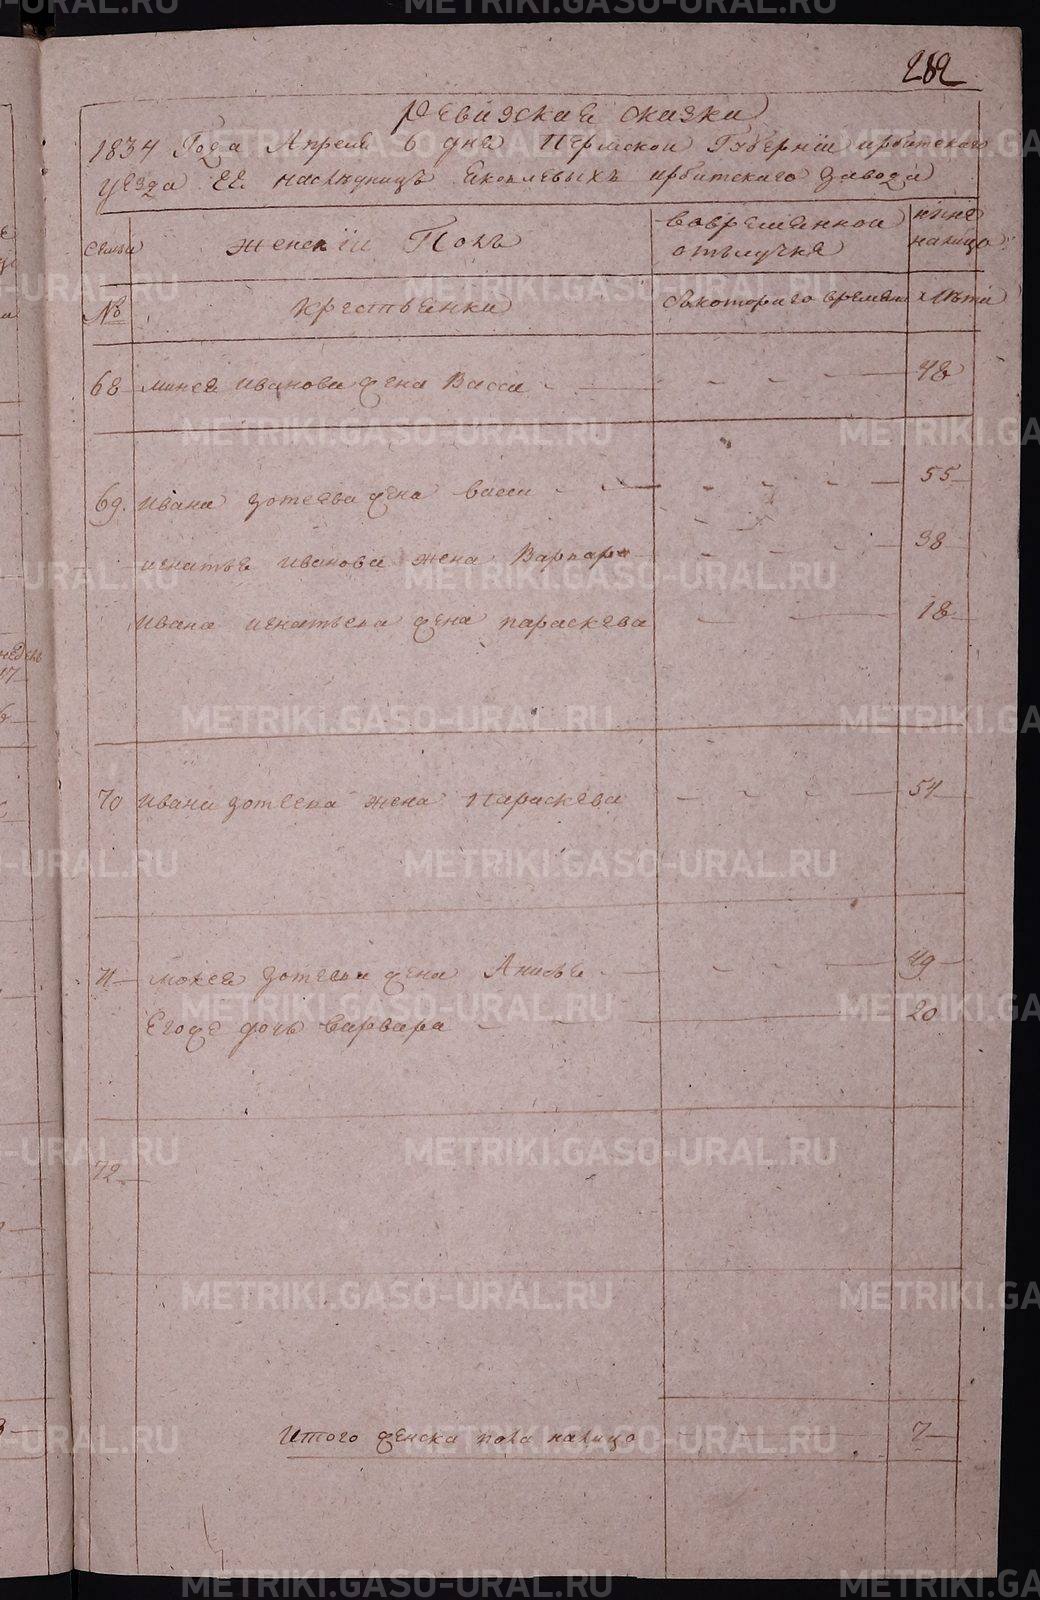 212
Ревизские сказки
1834 Года Апреля 6 дня Пермской Губернии ирбитского
уезда ЕЕ наследницъ Яковлевыхъ ирбитского завода
семьи
женскiй Полъ
вовременной
отълучке
ныне
налицо
№
крестьянки
съкоторого времени
Лета
68 минея иванова жена Васса 48
69. Ивана зотеева жена васса 55
игнатья иванова жена Варвара 38
Ивана игнатьева жена параскева 18
70 Ивана зотеева жена Параскева 54
71 мокея зотеева жена Анисья 49
Егоже дочь варвара 20
72
Итого женска пола налицо 7
METRIKI.GASO-URAL.RU